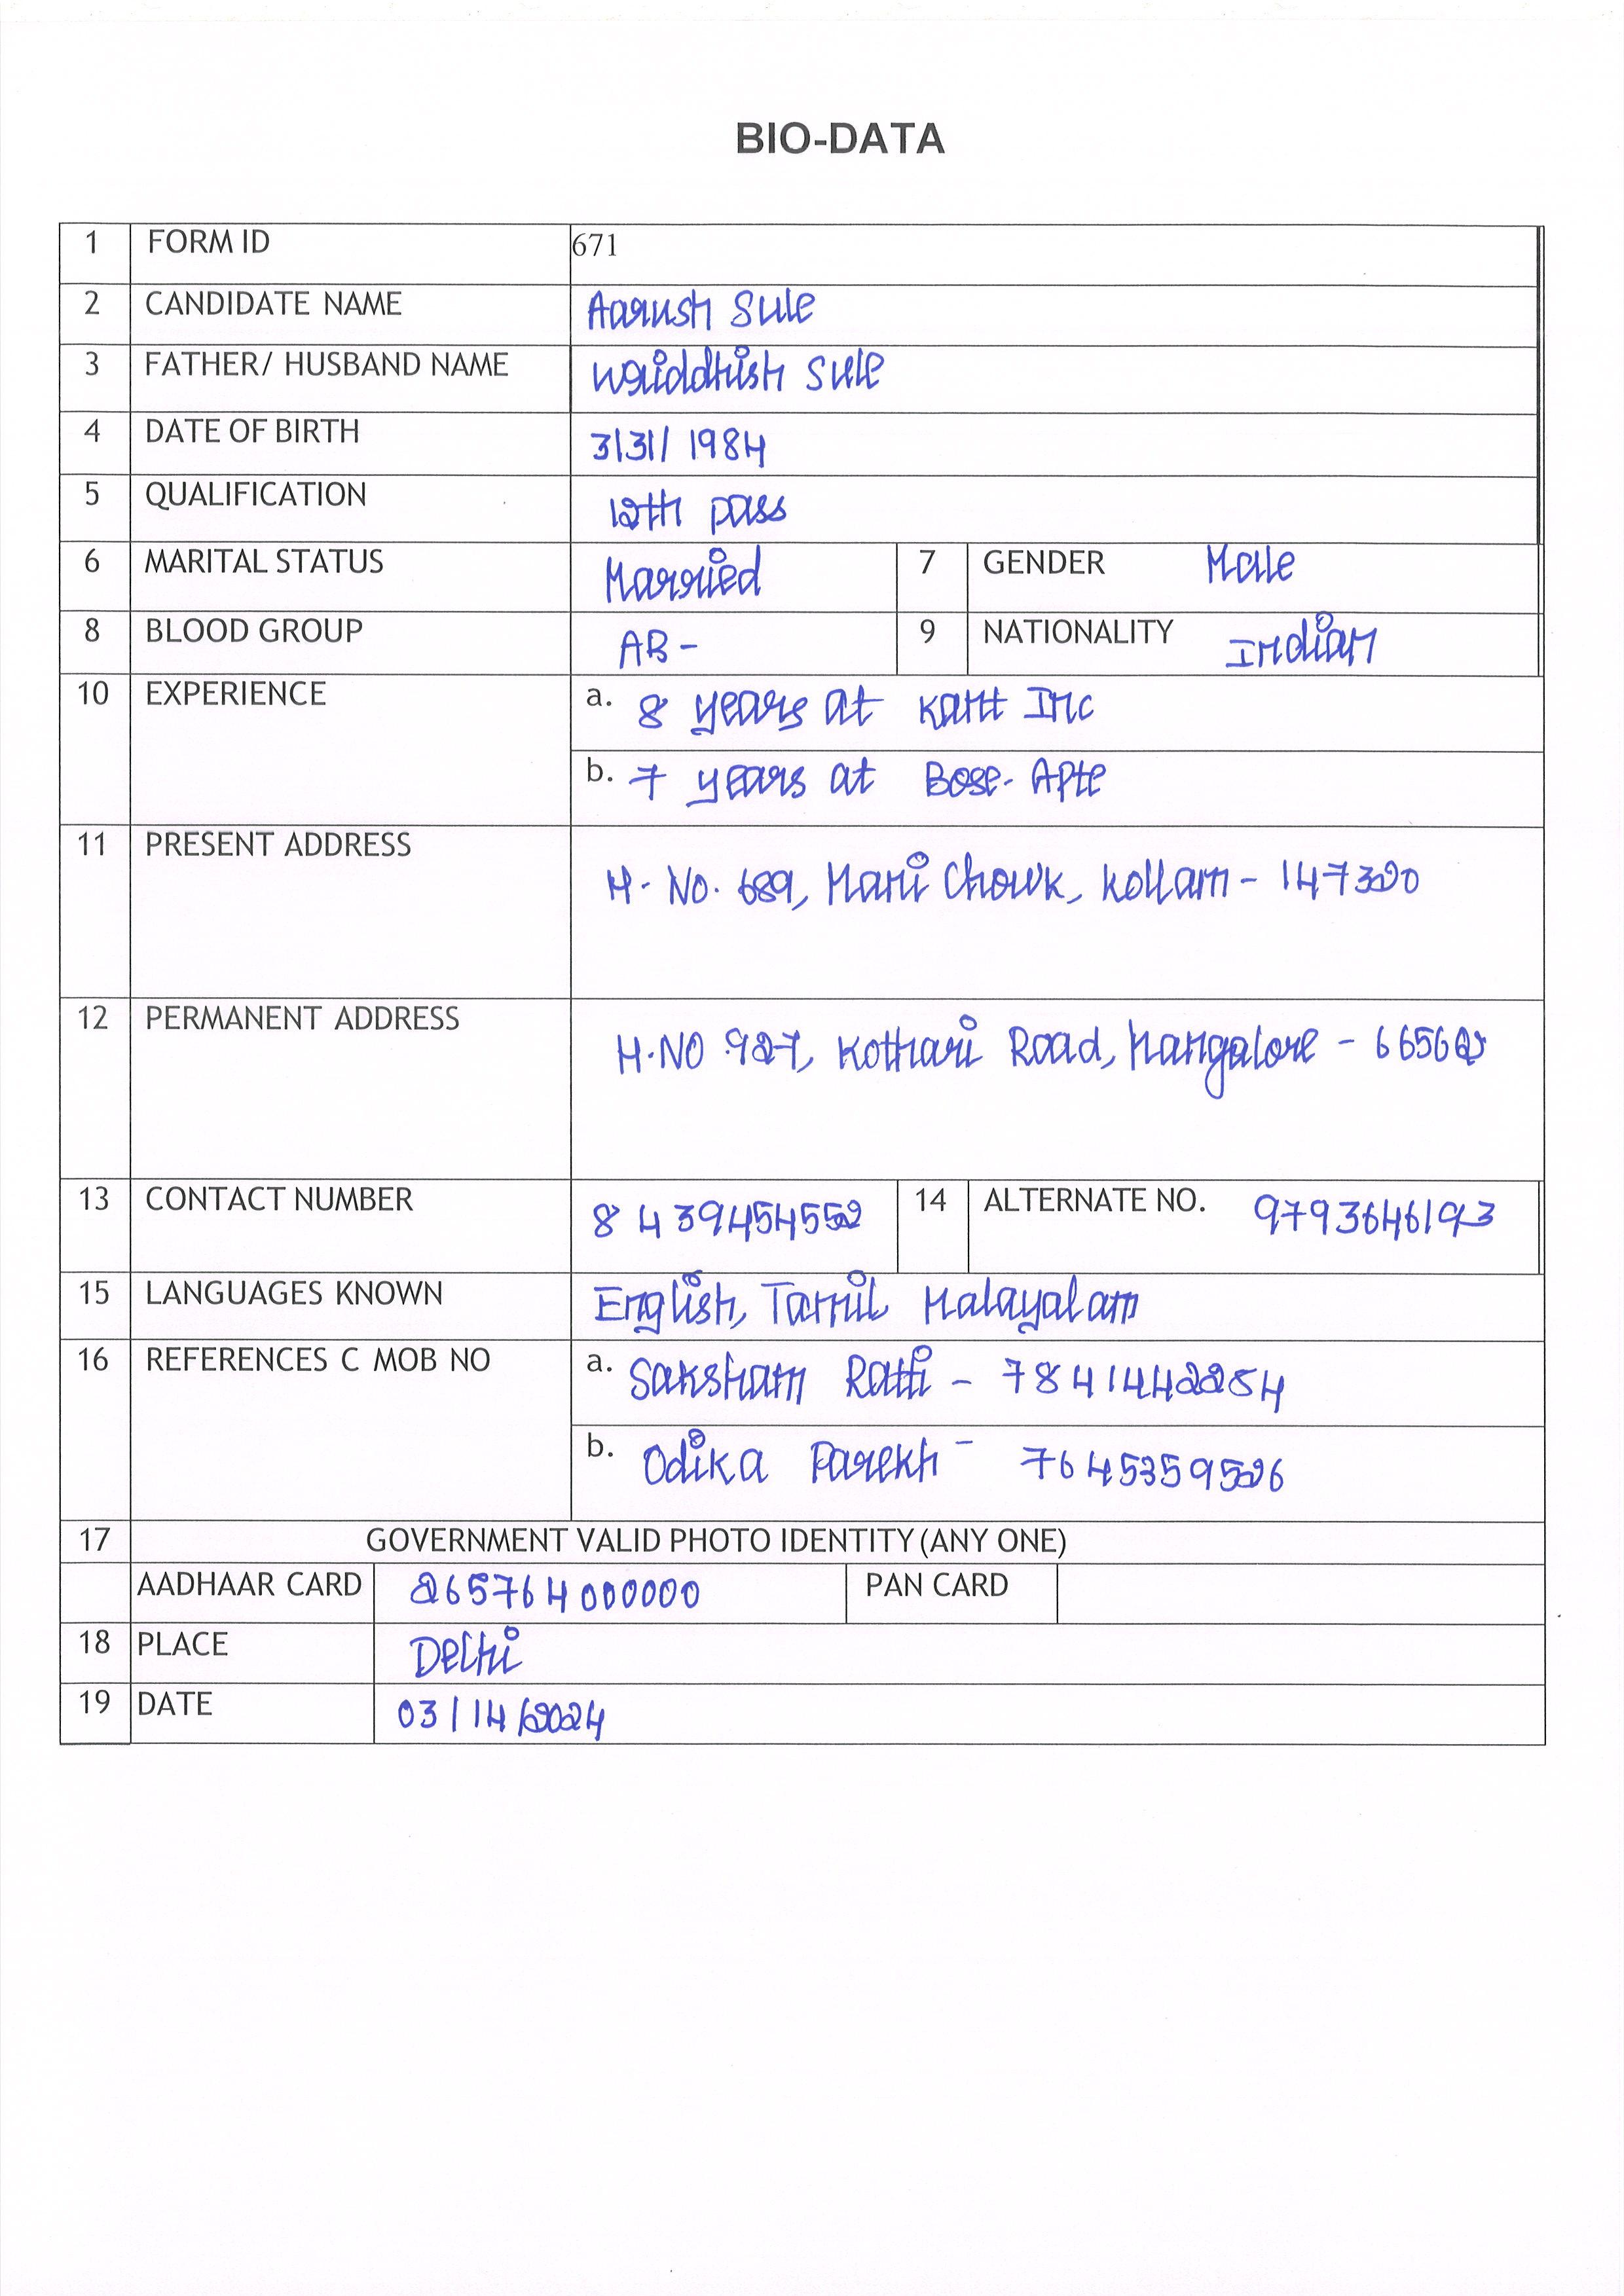 BIO-DATA
1 FORM ID 671
2 CANDIDATE NAME Aarush Sule
3 FATHER/ HUSBAND NAME Wriddhish Sule
4 DATE OF BIRTH 3/31/1984
5 QUALIFICATION 12th pass
6 MARITAL STATUS Married 7 GENDER Male
8 BLOOD GROUP AB- 9 NATIONALITY Indian
10 EXPERIENCE a. 8 years at Kant Inc
b. 7 years at Bose-Apte
11 PRESENT ADDRESS H. No. 689, Mani Chowk, Kollam - 147320
12 PERMANENT ADDRESS H.NO 927, Kothari Road, Mangalore -
13 CONTACT NUMBER 8439454552 14 ALTERNATE NO. 9793646193
15 LANGUAGES KNOWN English, Tamil Malayalam
16 REFERENCES C MOB NO a. Saksham Ratti - 7841442254
b. Odika Parekh - 7645359526
17 GOVERNMENT VALID PHOTO IDENTITY (ANY ONE)
AADHAAR CARD 265764000000 PAN CARD
18 PLACE Delhi
19 DATE 03/14/2024